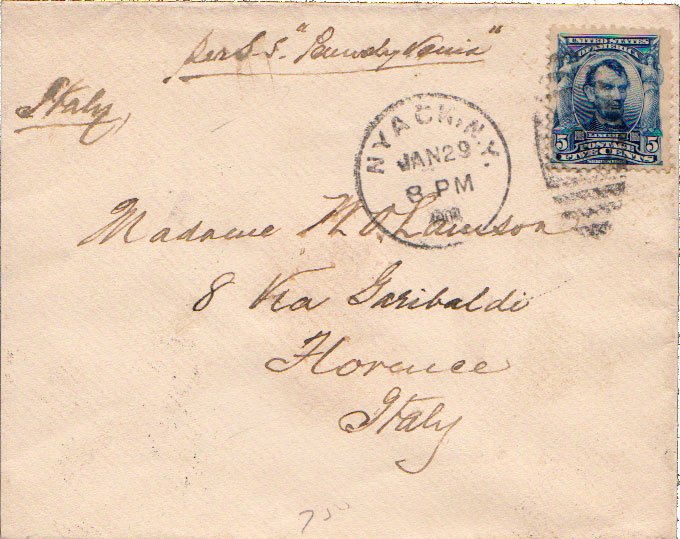 Per S.S. "Pennsylvania"
Italy,
UNITED STATES
OF AMERICA
5 LINCOLN 5
POSTAGE
FIVE CENTS
NYACK, N.Y.
JAN 29
8 PM
Madame Lawson
8 Via Garibaldi
Florence
Italy